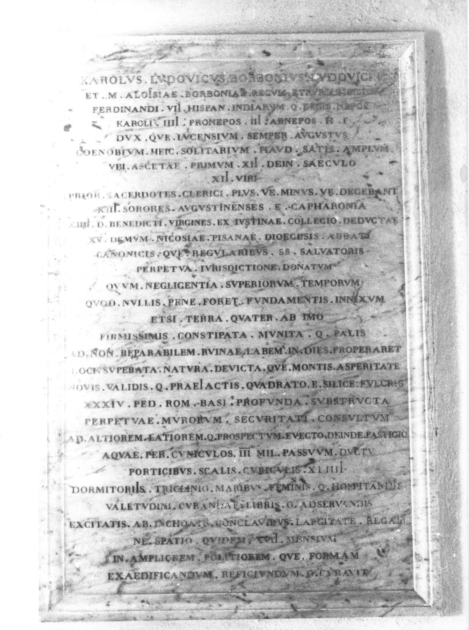 KAROLVS . LVDOVICVS . BORBONIVS . LVDOVICI
ET . M . ALOISIAE . BORBONIAE . REGVM . ETRVR
FERDINANDI . VII . HISPAN . INDIARVM . Q . REGIS . NEPOS
KAROLI . IIII . PRONEPOS . III . ABNEPOS . H . I
DVX . QVE . LVCENSIVM . SEMPER . AVGVSTVS
COENOBIVM . HEIC . SOLITARIVM . HAVD . SATIS . AMPLVM
VBI . ASCETAE . PRIMVM . XII . DEIN . SAECVLO
XII . VIRI
PRIOR . SACERDOTES . CLERICI . PLVS . VE . MINVS . VE . DEGEBANT
SORORES . AVGVSTINENSES . E . CAPHARONIA
D . BENEDICTI . VIRGINES . EX . IVSTINAE . COLLEGIO . DEDVCTAE
XV . DEMVM . NICOSIAE . PISANAE . DIOECESIS . ABBATI
CANONICIS . QVE . REGVLARIBVS . SS . SALVATORIS
PERPETVA . IVRISDICTIONE . DONATVM
QVVM . NEGLIGENTIA . SVPERIORVM . TEMPORVM
QVOD . NVLLIS . PENE . FORET . FVNDAMENTIS . INNIXVM
ETSI . TERRA . QVATER . AB . IMO
FIRMISSIMIS . CONSTIPATA . MVNITA . Q . PALIS
AD . NON . REPARABILEM . RVINAE . LABEM . IN . DIES . PROPERARET
LOCI . SVPERATA . NATVRA . DEVICTA . QVE . MONTIS . ASPERITATE
NOVIS . VALIDIS . Q . PRAELACTIS . QVADRATO . E . SILICE . FVLCRIS
XXXIV . PED . ROM . BASI . PROFVNDA . SVBSTRVCTA
PERPETVAE . MVRORVM . SECVRITATI . CONSVLTVM
AD . ALTIOREM . LATIOREM . Q . PROSPECTVM . EVECTO . DEINDE . FASTIGIO
AQVAE . PER . CVNICVLOS . III . MIL . PASSVVM . DVCTV
PORTICIBVS . SCALIS . CVBICVLIS . XLIIII
DORMITORIIS . TRICLINIO . MARIBVS . FEMINIS . Q . HOSPITANDIS
VALETVDINI . CVRANDAE . LIBRIS . Q . ADSERVANDIS
EXCITATIS . AB . INCHOATO . CONCLAVIBVS . LARGITATE . REGALI
NE . SPATIO . QVIDEM . XVII . MENSIVM
IN . AMPLIOREM . POLITIOREM . QVE . FORMAM
EXAEDIFICANDVM . REFICIVNDVM . Q . CVRAVIT